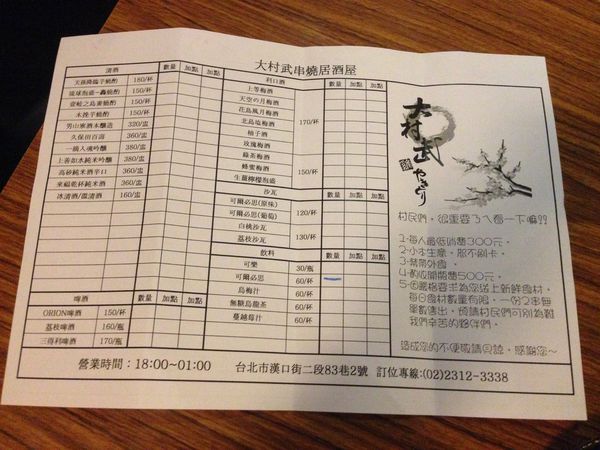 大村武串燒居酒屋
清酒 數量 加點 加點
天孫降臨芋燒酎 180/杯
琉球泡盛-轟燒酎 150/杯
壹岐之島麥燒酎 150/杯
木挽芋燒酎 150/杯
男山寒酒本釀造 320/盅
久保田百壽 360/盅
一滴入魂吟釀 360/盅
上善如水純米吟釀 380/盅
高砂純米酒辛口 360/盅
來福乾杯純米酒 360/盅
冰清酒/溫清酒 160/盅
啤酒 數量 加點 加點
ORION啤酒 150/瓶
荔枝啤酒 160/瓶
三得利啤酒 170/瓶
利口酒 數量 加點 加點
上等梅酒
天空の月梅酒
花鳥風月梅酒
北島塩梅酒 170/杯
柚子酒
玫瑰梅酒
綠茶梅酒
蜂蜜梅酒 150/杯
生薑檸檬泡盛
沙瓦 數量 加點 加點
可爾必思(原味) 120/杯
可爾必思(葡萄)
白桃沙瓦 130/杯
荔枝沙瓦
飲料 數量 加點 加點
可樂 30/瓶
可爾必思 60/杯
烏梅汁 60/杯
無糖烏龍茶 60/杯
蔓越莓汁 60/杯
大村武
やきとり
村民們，很重要ㄋㄟ看一下嘛!!
1-每人最低消費300元。
2-小本生意，恕不刷卡。
3-禁帶外食。
4-酌收開瓶費500元。
5-因嚴格要求為您送上新鮮食材，
每日食材數量有限，一份2串無
單數售出，預請村民們可別為難
我們辛苦的夥伴們。
造成您的不便敬請見諒，感謝您~
營業時間：18:00~01:00 台北市漢口街二段83巷2號 訂位專線:(02)2312-3338